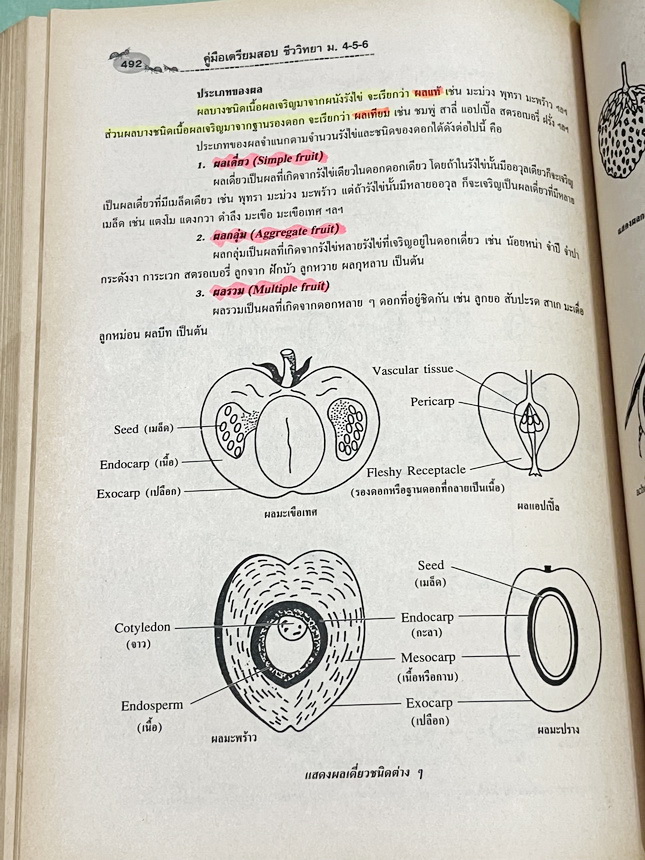 492
คู่มือเตรียมสอบ ชีววิทยา ม. 4-5-6
ประเภทของผล
ผลบางชนิดเนื้อผลเจริญมาจากผนังรังไข่ จะเรียกว่า ผลแท้ เช่น มะม่วง พุทรา มะพร้าว ฯลฯ
ส่วนผลบางชนิดเนื้อผลเจริญมาจากฐานรองดอก จะเรียกว่า ผลเทียม เช่น ชมพู่ สาลี่ แอปเปิ้ล สตรอเบอรี่ ฝรั่ง ฯลฯ
ประเภทของผลจำแนกตามจำนวนรังไข่และชนิดของดอกได้ดังต่อไปนี้ คือ
1. ผลเดี่ยว (Simple fruit)
ผลเดี่ยวเป็นผลที่เกิดจากรังไข่เดียวในดอกดอกเดียว โดยถ้าในรังไข่นั้นมีออวุลเดียวก็จะเจริญ
เป็นผลเดี่ยวที่มีเมล็ดเดียว เช่น พุทรา มะม่วง มะพร้าว แต่ถ้ารังไข่นั้นมีหลายออวุล ก็จะเจริญเป็นผลเดี่ยวที่มีหลาย
เมล็ด เช่น แตงโม แตงกวา ตำลึง มะเขือ มะเขือเทศ ฯลฯ
2. ผลกลุ่ม (Aggregate fruit)
ผลกลุ่มเป็นผลที่เกิดจากรังไข่หลายรังไข่ที่เจริญอยู่ในดอกเดียว เช่น น้อยหน่า จำปี จำปา
กระดังงา การะเวก สตรอเบอรี่ ลูกจาก ฝักบัว ลูกหวาย ผลกุหลาบ เป็นต้น
3. ผลรวม (Multiple fruit)
ผลรวมเป็นผลที่เกิดจากดอกหลาย ๆ ดอกที่อยู่ชิดกัน เช่น ลูกยอ สับปะรด สาเก มะเดื่อ
ลูกหม่อน ผลบีท เป็นต้น
Vascular tissue
Pericarp
Seed (เมล็ด)
Endocarp (เนื้อ)
Fleshy Receptacle
Exocarp (เปลือก)
(รองดอกหรือฐานดอกที่กลายเป็นเนื้อ)
ผลมะเขือเทศ
ผลแอปเปิ้ล
Seed
(เมล็ด)
Cotyledon
(จาว)
Endocarp
(กะลา)
Mesocarp
(เนื้อหรือกาบ)
Endosperm
(เนื้อ)
Exocarp
(เปลือก)
ผลมะพร้าว
ผลมะปราง
แสดงผลเดี่ยวชนิดต่าง ๆ